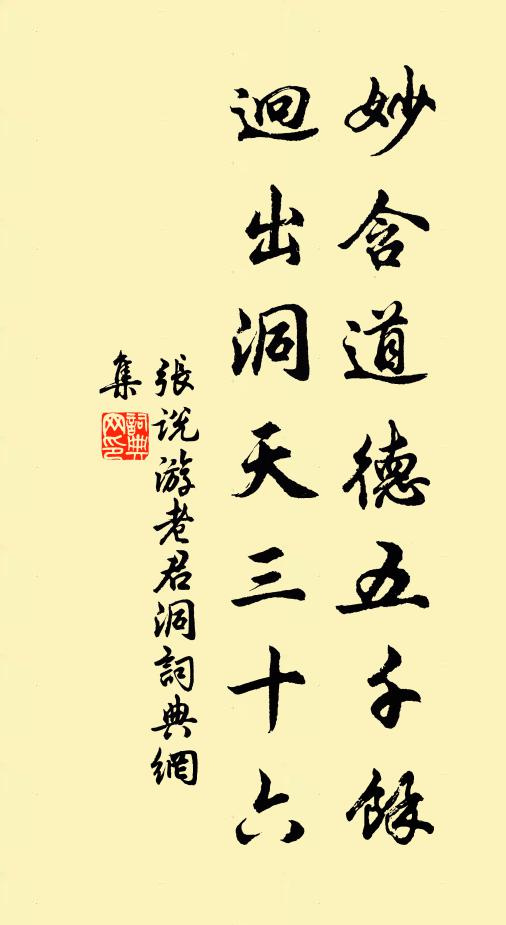 妙含道德五千餘
迥出洞天三十六
張説游老君洞詞典網
集
詞典
网印